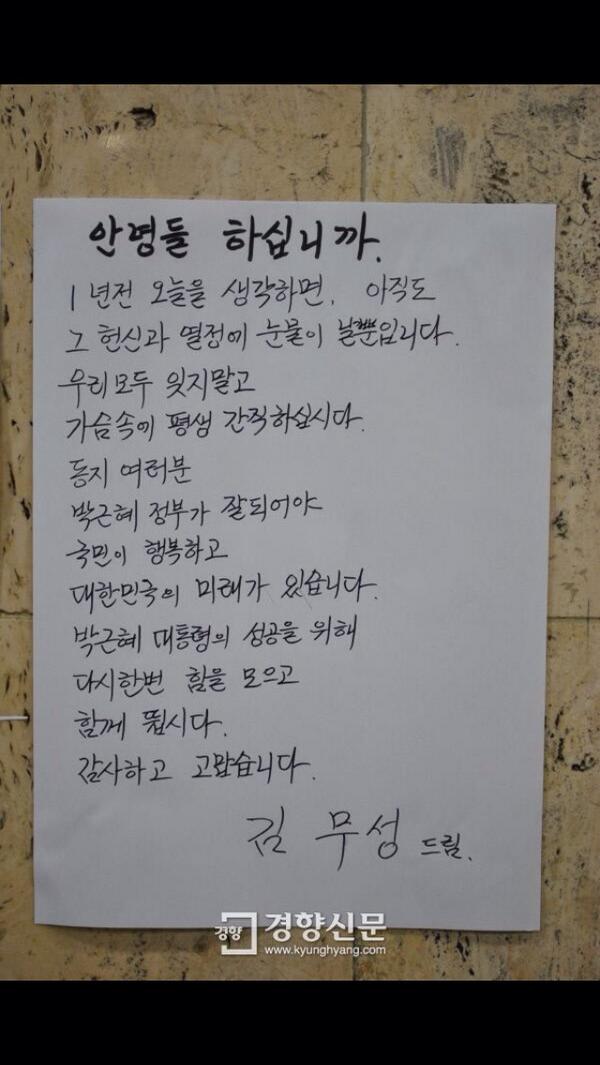 안녕들 하십니까.
1년전 오늘을 생각하면, 아직도
그 헌신과 열정에 눈물이 날뿐입니다.
우리모두 잊지말고
가슴속에 평생 간직하십시다.
동지 여러분
박근혜 정부가 잘되어야
국민이 행복하고
대한민국의 미래가 있습니다.
박근혜 대통령의 성공을 위해
다시한번 힘을 모으고
함께 뜁시다.
감사하고 고맙습니다.
김무성 드림.
경향 경향신문
www.kyunghyang.com